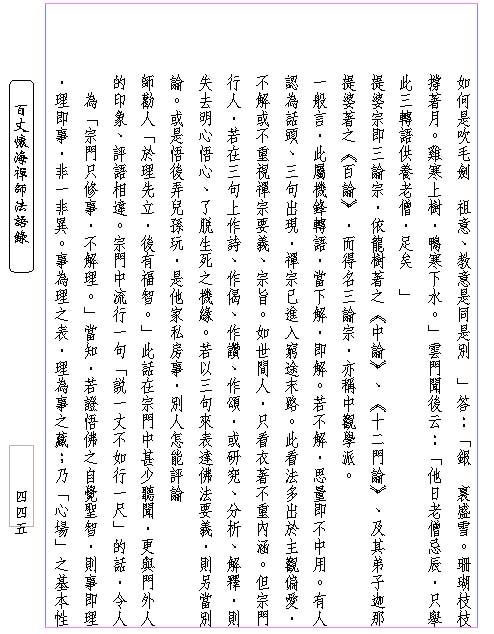 如何是吹毛劍　祖意、教意是同是別　」答：「銀　裏盛雪。珊瑚枝枝
撐著月。雞寒上樹，鴨寒下水。」雲門聞後云：「他日老僧忌辰，只舉
此三轉語供養老僧，足矣　」
提婆宗即三論宗，依龍樹著之《中論》、《十二門論》、及其弟子迦那
提婆著之《百論》，而得名三論宗，亦稱中觀學派。
一般言，此屬機鋒轉語，當下解，即解。若不解，思量即不中用。有人
認為話頭、三句出現，禪宗已進入窮途末路。此看法多出於主觀偏愛，
不解或不重視禪宗要義、宗旨。如世間人，只看衣著不重內涵。但宗門
行人，若在三句上作詩、作偈、作讚、作頌，或研究、分析、解釋，則
失去明心悟心、了脫生死之機緣。若以三句來表達佛法要義，則另當別
論。或是悟後弄兒孫玩，是他家私房事，別人怎能評論
師勸人「於理先立，後有福智。」此話在宗門中甚少聽聞，更與門外人
的印象、評語相違。宗門中流行一句「說一丈不如行一尺」的話，令人
為「宗門只修事，不解理。」當知，若證悟佛之自覺聖智，則事即理
，理即事，非一非異。事為理之表，理為事之藏；乃「心場」之基本性
百丈懷海禪師法語錄
四四五